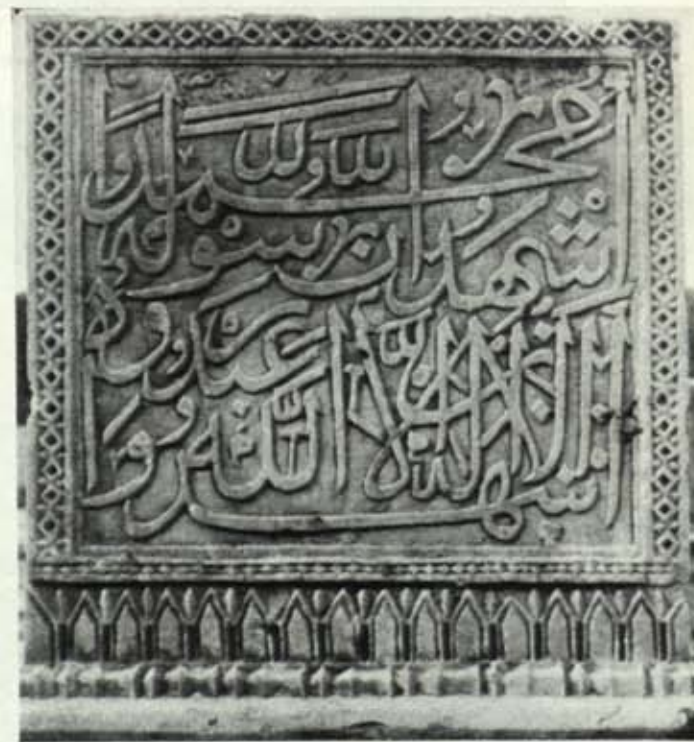 اشهد ان لا اله الا الله و
اشهد ان محمدا عبده و رسوله